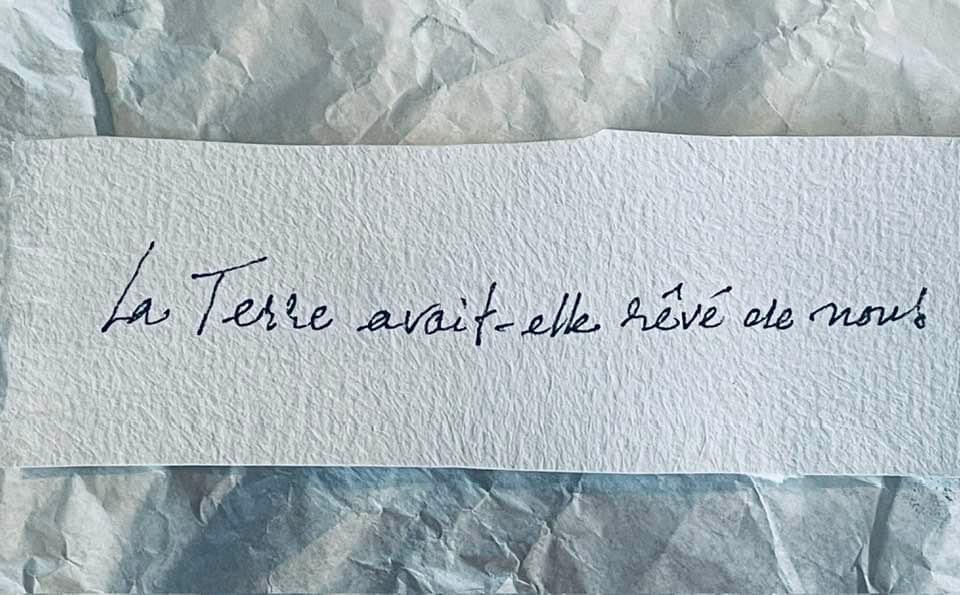 La Terre avait-elle rêvé de nous